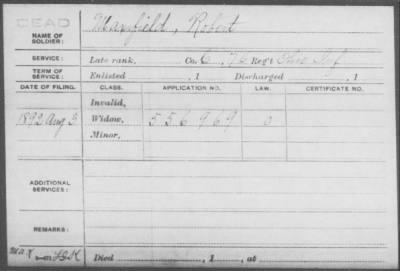 DEAD
NAME OF SOLDIER: Mansfield, Robert
SERVICE: Late rank, Co. C, 76 Reg't Ohio Inf
TERM OF SERVICE: Enlisted , 1 Discharged , 1
DATE OF FILING. CLASS. APPLICATION NO. LAW. CERTIFICATE NO.
Invalid,
1892 Aug 3 Widow, 556969 O
Minor,
ADDITIONAL SERVICES:
REMARKS:
Died , 1 , at